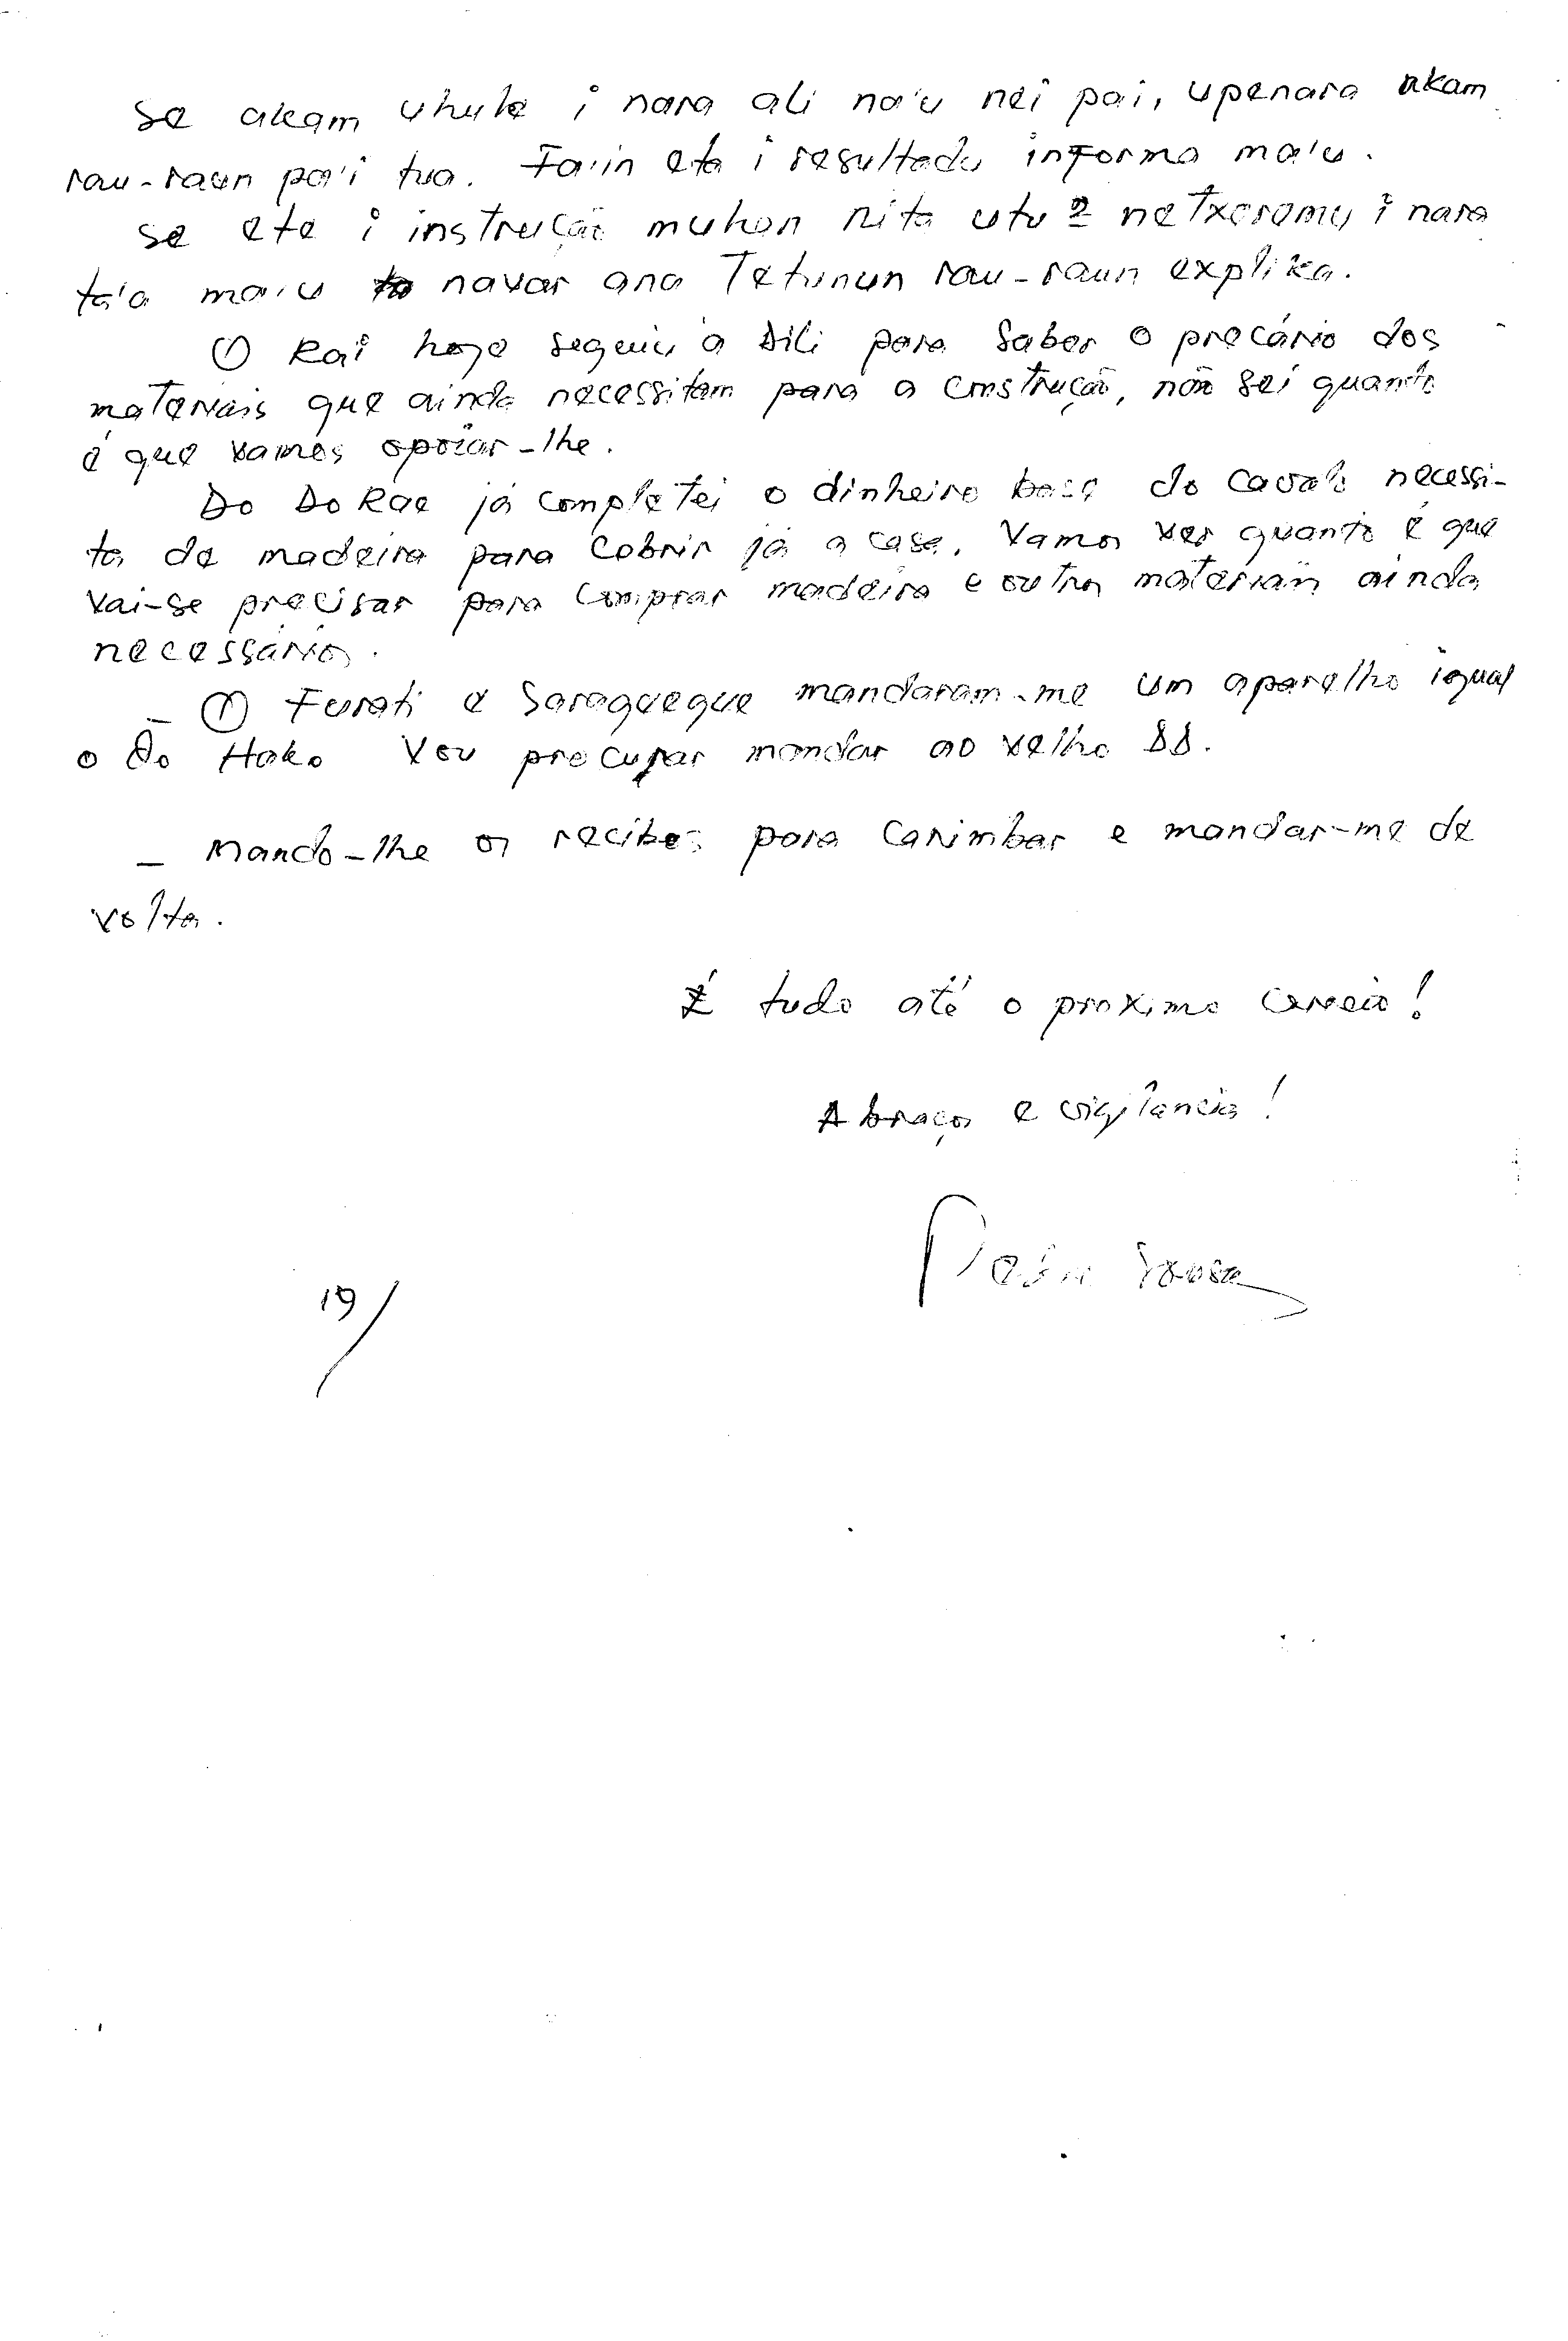 se akam uhule i nara ali na'u nei pai, upenara akam
rau-raun pa'i tua. Fa'in eta i resultadu informa ma'u.
se ete i instrução muhon nita utu e netxeramu i nara
ta'a ma'u navar ana Tetunun rau-raun explika.
O Rai hoje seguiu a Dili para saber o precário dos
materiais que ainda necessitam para a construção, não sei quanto
é que vamos apoiar-lhe.
Do Do Rae já completei o dinheiro base do cavalo necessi-
ta de madeira para cobrir já a case. Vamos ver quanto é que
vai-se precisar para comprar madeira e outros materiais ainda
necessários.
- O Furati e Saraqueque mandaram-me um aparelho igual
o do Hako Vou procurar mandar ao velho DD.
- Mando-lhe os recibos para carimbar e mandar-me de
volta.
É tudo até o proximo correio!
Abraços e vigilância!
Sousa
19/